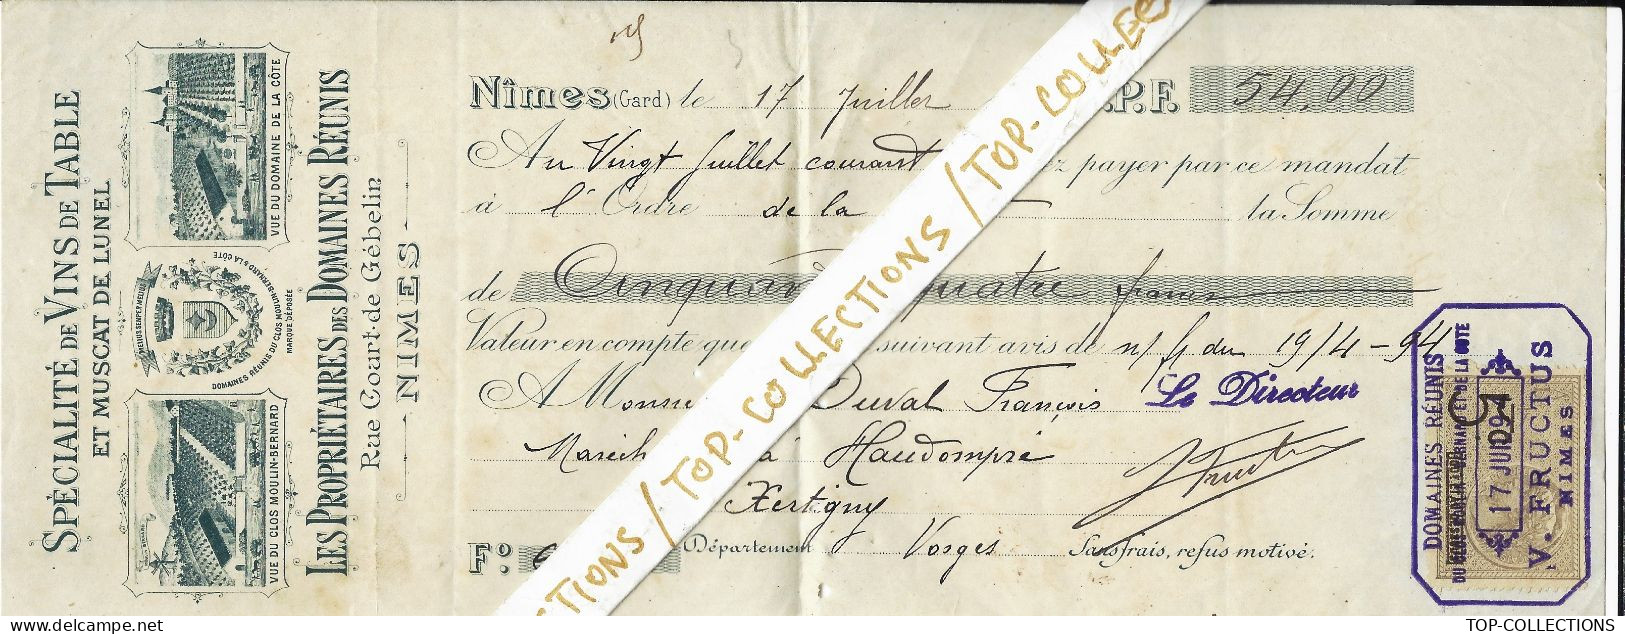 SPÉCIALITÉ DE VINS DE TABLE
ET MUSCAT DE LUNEL
VUE DU DOMAINE DE LA CÔTE
MELIUS SEMPER MELIUS
DOMAINES RÉUNIS DU CLOS MOULIN-BERNARD & LA CÔTE
MARQUE DÉPOSÉE
VUE DU CLOS MOULIN-BERNARD
LES PROPRIÉTAIRES DES DOMAINES RÉUNIS
Rue Court-de Gébelin
NIMES
Nîmes (Gard) le 17 Juillet P.F. 54,00
Au Vingt Juillet courant payer par ce mandat
à l'Ordre de la la Somme
de Cinquante quatre francs
Valeur en compte que suivant avis de n/f du 19/4-94
A Monsieur Duval François
Le Directeur
à Haudompré
Xertigny
F.o Département Vosges Sans frais, refus motivé.
DOMAINES RÉUNIS
17 JUI 94
V. FRUCTUS
NIMES
TIONS / TOP-COLLECTIONS / TOP-COLLEC
TOP-COLLECTIONS
delcampe.net
TOP-COLLECTIONS